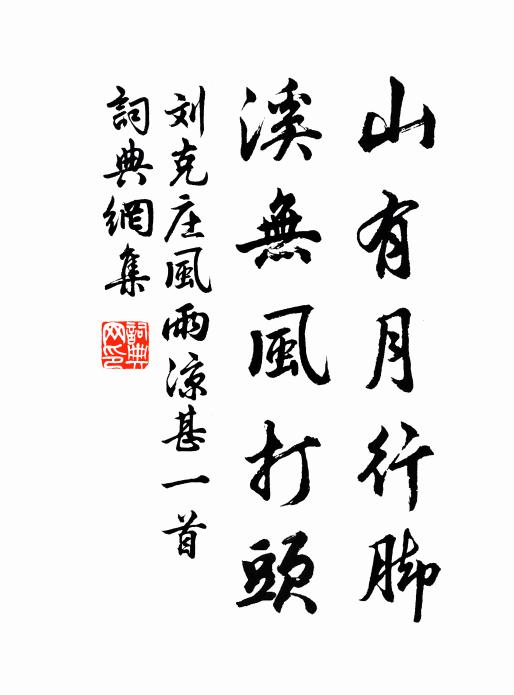 山有月行脚
溪無風打頭
刘克庄風雨凉甚一首
詞典網集
詞典網印